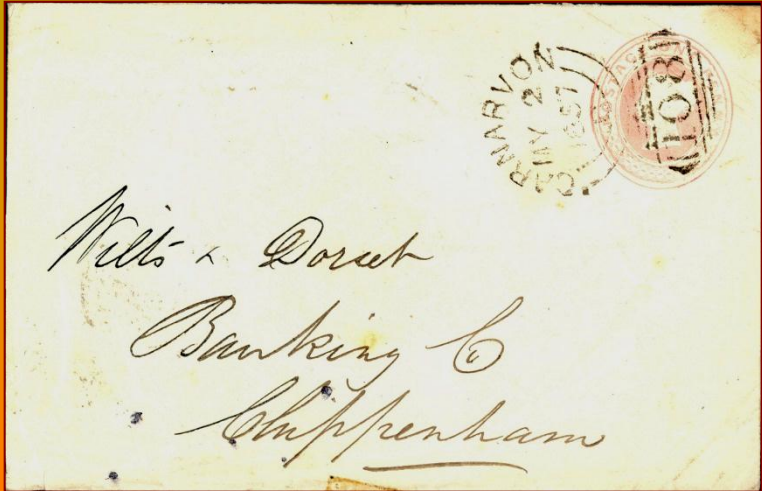 CARNARVON
MY 2
1857
108
POSTAGE ONE PENNY
Wilts & Dorset
Banking Co
Chippenham